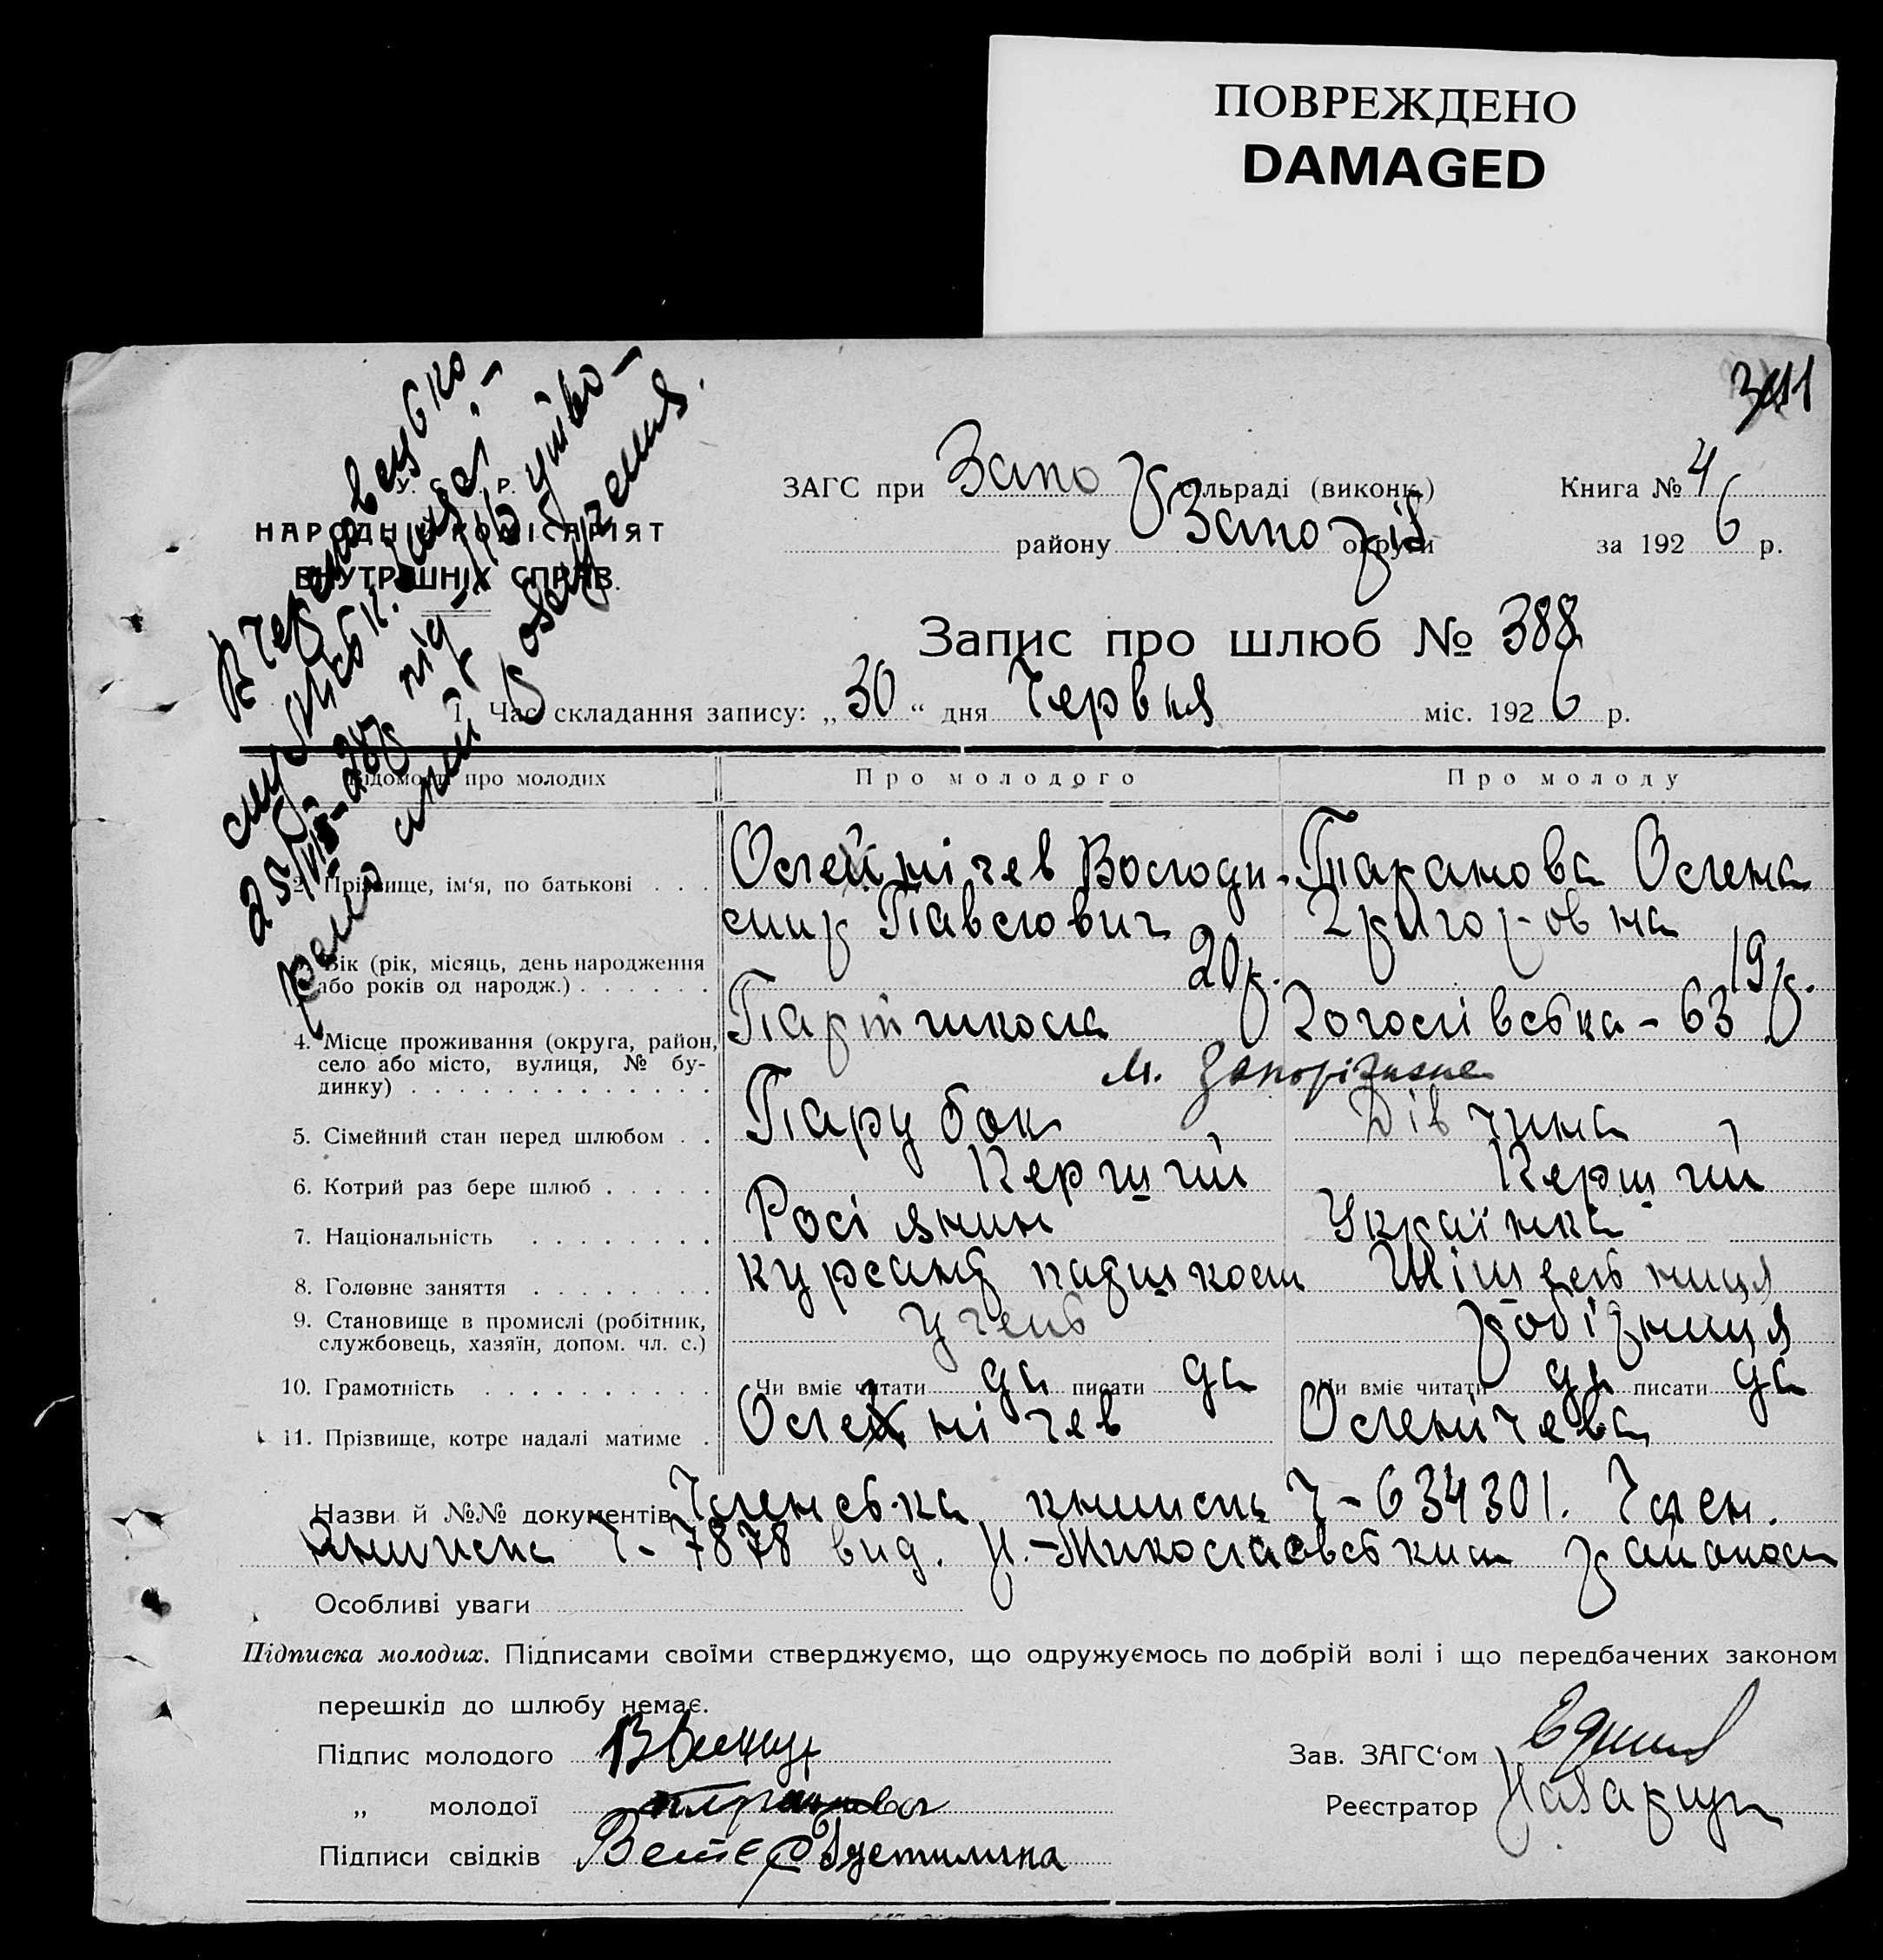 ПОВРЕЖДЕНО
DAMAGED
У. С. Р. Р.
НАРОДНІЙ КОМІСАРІЯТ
ВНУТРІШНІХ СПРАВ.
ЗАГС при Запо сільраді (виконк.)
Книга № 4
району Запоріз округи
за 1926 р.
Запис про шлюб № 388
1. Час складання запису: „30“ дня Червня міс. 1926 р.
Відомості про молодих
Про молодого
Про молоду
2. Прізвище, ім‘я, по батькові . . .
Володи-
мир Павлович
Таранова Олена
Григоровна
3. Вік (рік, місяць, день народження
або років од народж.) . . . . . .
20р.
19р.
4. Місце проживання (округа, район,
село або місто, вулиця, № бу-
динку) . . . . . . . . . . . . .
Партшкола
Гоголівська - 63
м. Запоріжжє
5. Сімейний стан перед шлюбом . .
Парубок
Дівчина
6. Котрий раз бере шлюб . . . . .
Перший
Перший
7. Національність . . . . . . . .
Росіянин
Українка
8. Головне заняття . . . . . . . .
курсант
9. Становище в промислі (робітник,
службовець, хазяїн, допом. чл. с.)
учень
робітниця
10. Грамотність . . . . . . . . . .
Чи вміє читати да писати да
Чи вміє читати да писати да
11. Прізвище, котре надалі матиме .
Оленічев
Оленічева
Назви й №№ документів Членська книжка Ч-634301. Член.
Книжка Ч-7878 вид. Н.-Миколаєвським районом
Особливі уваги
Підписка молодих. Підписами своїми стверджуємо, що одружуємось по добрій волі і що передбачених законом
перешкід до шлюбу немає.
Підпис молодого
Зав. ЗАГС‘ом
„ молодої
Реєстратор Назарчук
Підписи свідків